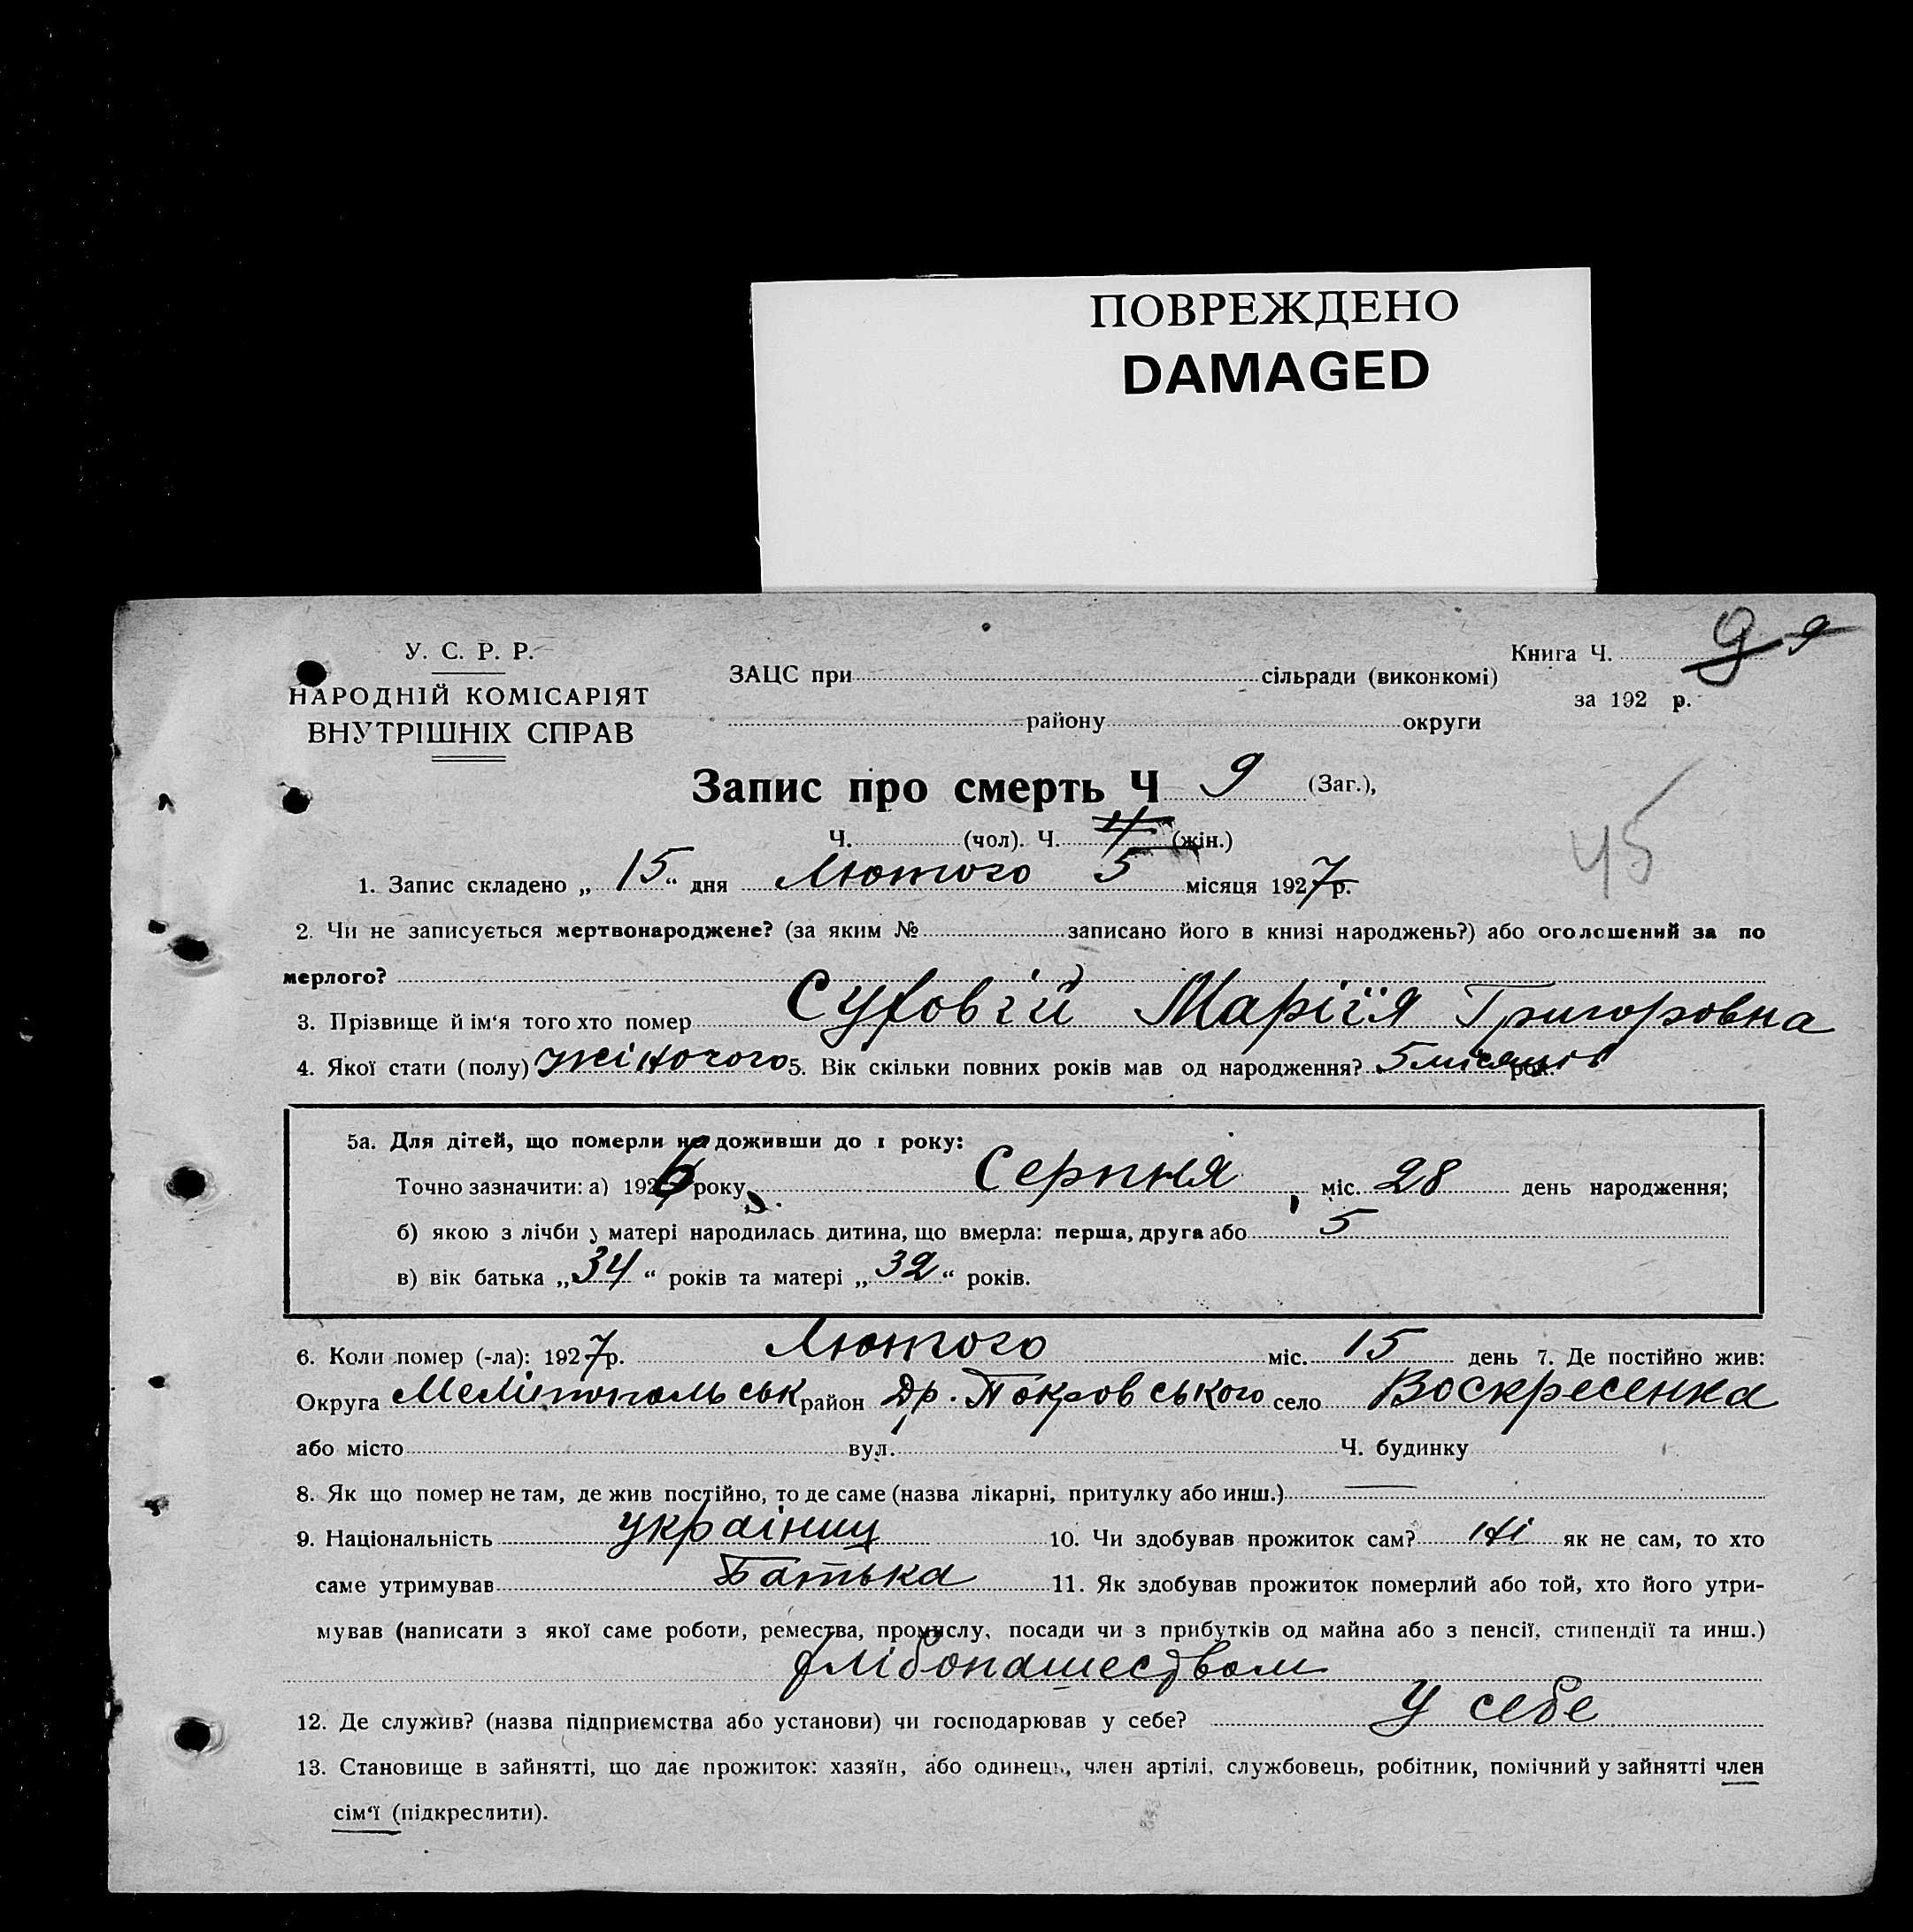 ПОВРЕЖДЕНО
DAMAGED
У. С. Р. Р.
НАРОДНІЙ КОМІСАРІЯТ
ВНУТРІШНІХ СПРАВ
ЗАЦС при сільради (виконкомі)
району округи
Книга Ч. 9 9
за 192 р.
Запис про смерть Ч 9 (Заг.),
Ч. (чол). Ч. 4 (жін.)
5
45
1. Запис складено „ 15 “ дня Лютого місяця 1927 р.
2. Чи не записується мертвонароджене? (за яким № записано його в книзі народжень?) або оголошений за по
мерлого?
3. Прізвище й ім‘я того хто помер Суховій Маріїя Григоровна
4. Якої стати (полу) жіночого 5. Вік скільки повних років мав од народження? 5 місяців рок.
5а. Для дітей, що померли не доживши до 1 року:
Точно зазначити: а) 1926 року Серпня міс. 28 день народження;
б) якою з лічби у матері народилась дитина, що вмерла: перша, друга або 5
в) вік батька „ 34 “ років та матері „ 32 “ років.
6. Коли помер (-ла): 1927 р. Лютого міс. 15 день 7. Де постійно жив:
Округа Мелітопольськ район Др. Покровського село Воскресенка
або місто вул. Ч. будинку
8. Як що помер не там, де жив постійно, то де саме (назва лікарні, притулку або инш.)
9. Національність українц 10. Чи здобував прожиток сам? Ні як не сам, то хто
саме утримував Батька 11. Як здобував прожиток померлий або той, хто його утри-
мував (написати з якої саме роботи, ремества, промислу, посади чи з прибутків од майна або з пенсії, стипендії та инш.)
хлібопашеством
12. Де служив? (назва підприємства або установи) чи господарював у себе? У себе
13. Становище в зайнятті, що дає прожиток: хазяїн, або одинець, член артілі, службовець, робітник, помічний у зайнятті член
сім‘ї (підкреслити).